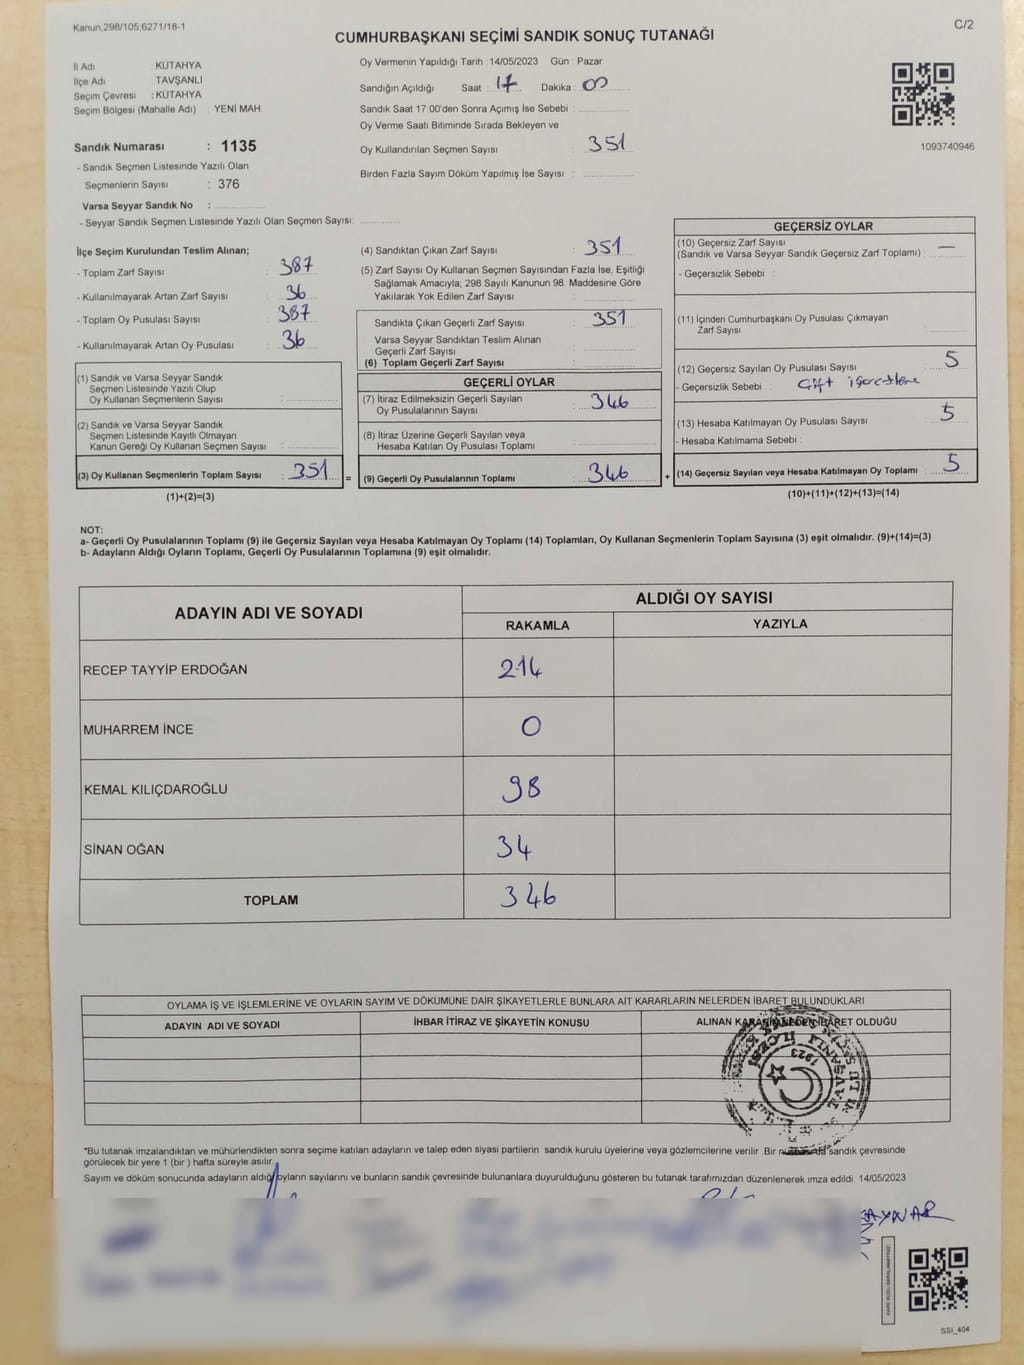 Kanun,298/105,6271/18-1
C/2
CUMHURBAŞKANI SEÇİMİ SANDIK SONUÇ TUTANAĞI
İl Adı : KÜTAHYA
İlçe Adı : TAVŞANLI
Seçim Çevresi : KÜTAHYA
Seçim Bölgesi (Mahalle Adı) : YENİ MAH.
Sandık Numarası : 1135
- Sandık Seçmen Listesinde Yazılı Olan
Seçmenlerin Sayısı : 376
Varsa Seyyar Sandık No :
- Seyyar Sandık Seçmen Listesinde Yazılı Olan Seçmen Sayısı:
Oy Vermenin Yapıldığı Tarih : 14/05/2023 Gün : Pazar
Sandığın Açıldığı Saat : 17 Dakika : 00
Sandık Saat 17:00'den Sonra Açımış İse Sebebi :
Oy Verme Saati Bitiminde Sırada Bekleyen ve
Oy Kullandırılan Seçmen Sayısı : 351
Birden Fazla Sayım Döküm Yapılmış İse Sayısı :
1093740946
İlçe Seçim Kurulundan Teslim Alınan;
- Toplam Zarf Sayısı : 387
- Kullanılmayarak Artan Zarf Sayısı : 36
- Toplam Oy Pusulası Sayısı : 387
- Kullanılmayarak Artan Oy Pusulası : 36
(1) Sandık ve Varsa Seyyar Sandık
Seçmen Listesinde Yazılı Olup
Oy Kullanan Seçmenlerin Sayısı :
(2) Sandık ve Varsa Seyyar Sandık
Seçmen Listesinde Kayıtlı Olmayan
Kanun Gereği Oy Kullanan Seçmen Sayısı :
(3) Oy Kullanan Seçmenlerin Toplam Sayısı : 351
(1)+(2)=(3)
=
(4) Sandıktan Çıkan Zarf Sayısı : 351
(5) Zarf Sayısı Oy Kullanan Seçmen Sayısından Fazla İse, Eşitliği
Sağlamak Amacıyla; 298 Sayılı Kanunun 98. Maddesine Göre
Yakılarak Yok Edilen Zarf Sayısı :
Sandıkta Çıkan Geçerli Zarf Sayısı : 351
Varsa Seyyar Sandıktan Teslim Alınan
Geçerli Zarf Sayısı :
(6) Toplam Geçerli Zarf Sayısı :
GEÇERLİ OYLAR
(7) İtiraz Edilmeksizin Geçerli Sayılan
Oy Pusulalarının Sayısı : 346
(8) İtiraz Üzerine Geçerli Sayılan veya
Hesaba Katılan Oy Pusulası Toplamı :
(9) Geçerli Oy Pusulalarının Toplamı : 346
+
GEÇERSİZ OYLAR
(10) Geçersiz Zarf Sayısı
(Sandık ve Varsa Seyyar Sandık Geçersiz Zarf Toplamı) : —
- Geçersizlik Sebebi :
(11) İçinden Cumhurbaşkanı Oy Pusulası Çıkmayan
Zarf Sayısı :
(12) Geçersiz Sayılan Oy Pusulası Sayısı : 5
- Geçersizlik Sebebi : Çift işaretleme
(13) Hesaba Katılmayan Oy Pusulası Sayısı : 5
- Hesaba Katılmama Sebebi :
(14) Geçersiz Sayılan veya Hesaba Katılmayan Oy Toplamı : 5
(10)+(11)+(12)+(13)=(14)
NOT:
a- Geçerli Oy Pusulalarının Toplamı (9) ile Geçersiz Sayılan veya Hesaba Katılmayan Oy Toplamı (14) Toplamları, Oy Kullanan Seçmenlerin Toplam Sayısına (3) eşit olmalıdır. (9)+(14)=(3)
b- Adayların Aldığı Oyların Toplamı, Geçerli Oy Pusulalarının Toplamına (9) eşit olmalıdır.
ADAYIN ADI VE SOYADI
ALDIĞI OY SAYISI
RAKAMLA YAZIYLA
RECEP TAYYİP ERDOĞAN 214
MUHARREM İNCE 0
KEMAL KILIÇDAROĞLU 98
SİNAN OĞAN 34
TOPLAM 346
OYLAMA İŞ VE İŞLEMLERİNE VE OYLARIN SAYIM VE DÖKÜMÜNE DAİR ŞİKAYETLERLE BUNLARA AİT KARARLARIN NELERDEN İBARET BULUNDUKLARI
ADAYIN ADI VE SOYADI İHBAR İTİRAZ VE ŞİKAYETİN KONUSU ALINAN KARARIN NEDEN İBARET OLDUĞU
1923
*Bu tutanak imzalandıktan ve mühürlendikten sonra seçime katılan adayların ve talep eden siyasi partilerin sandık kurulu üyelerine veya gözlemcilerine verilir .Bir nüshası da sandık çevresinde
görülecek bir yere 1 (bir ) hafta süreyle asılır
Sayım ve döküm sonucunda adayların aldığı oyların sayılarını ve bunların sandık çevresinde bulunanlara duyurulduğunu gösteren bu tutanak tarafımızdan düzenlenerek imza edildi. 14/05/2023
KAYNAR
SSI_404